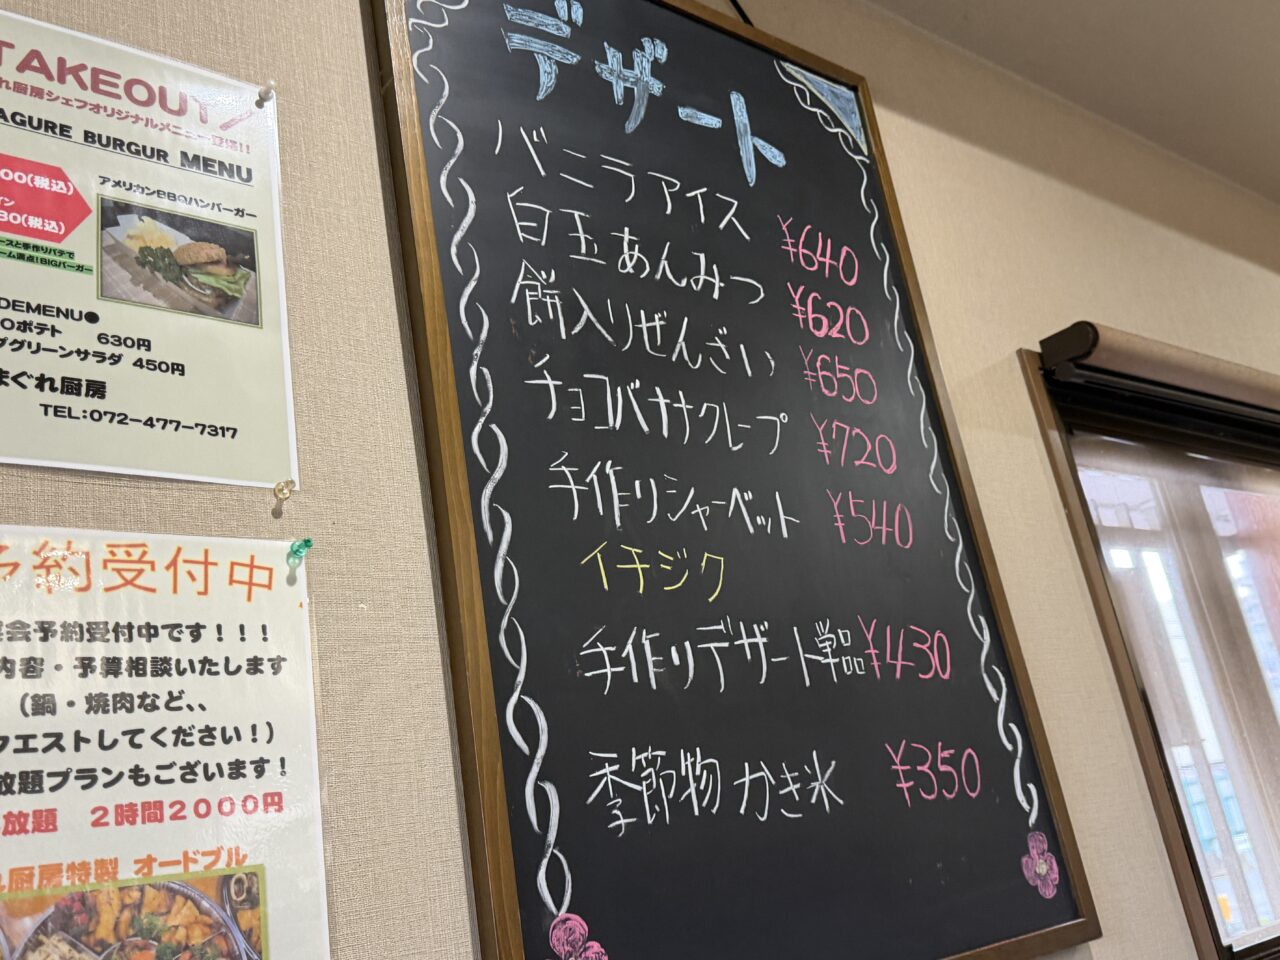 TAKEOUT
れ厨房シェフオリジナルメニュー登場!!
AGURE BURGUR MENU
00(税込)
アメリカンBBQハンバーガー
イン
80(税込)
ースと手作りパテで
ーム満点!BIGバーガー
DEMENU●
Oポテト 630円
グリーンサラダ 450円
まぐれ厨房
TEL:072-477-7317
予約受付中
宴会予約受付中です!!!
内容・予算相談いたします
(鍋・焼肉など、、
クエストしてください!)
放題プランもございます!
放題 2時間2000円
厨房特製 オードブル
デザート
バニラアイス ¥640
白玉あんみつ ¥620
餅入りぜんざい ¥650
チョコバナナクレープ ¥720
手作りシャーベット ¥540
イチジク
手作りデザート単品 ¥430
季節物 かき氷 ¥350